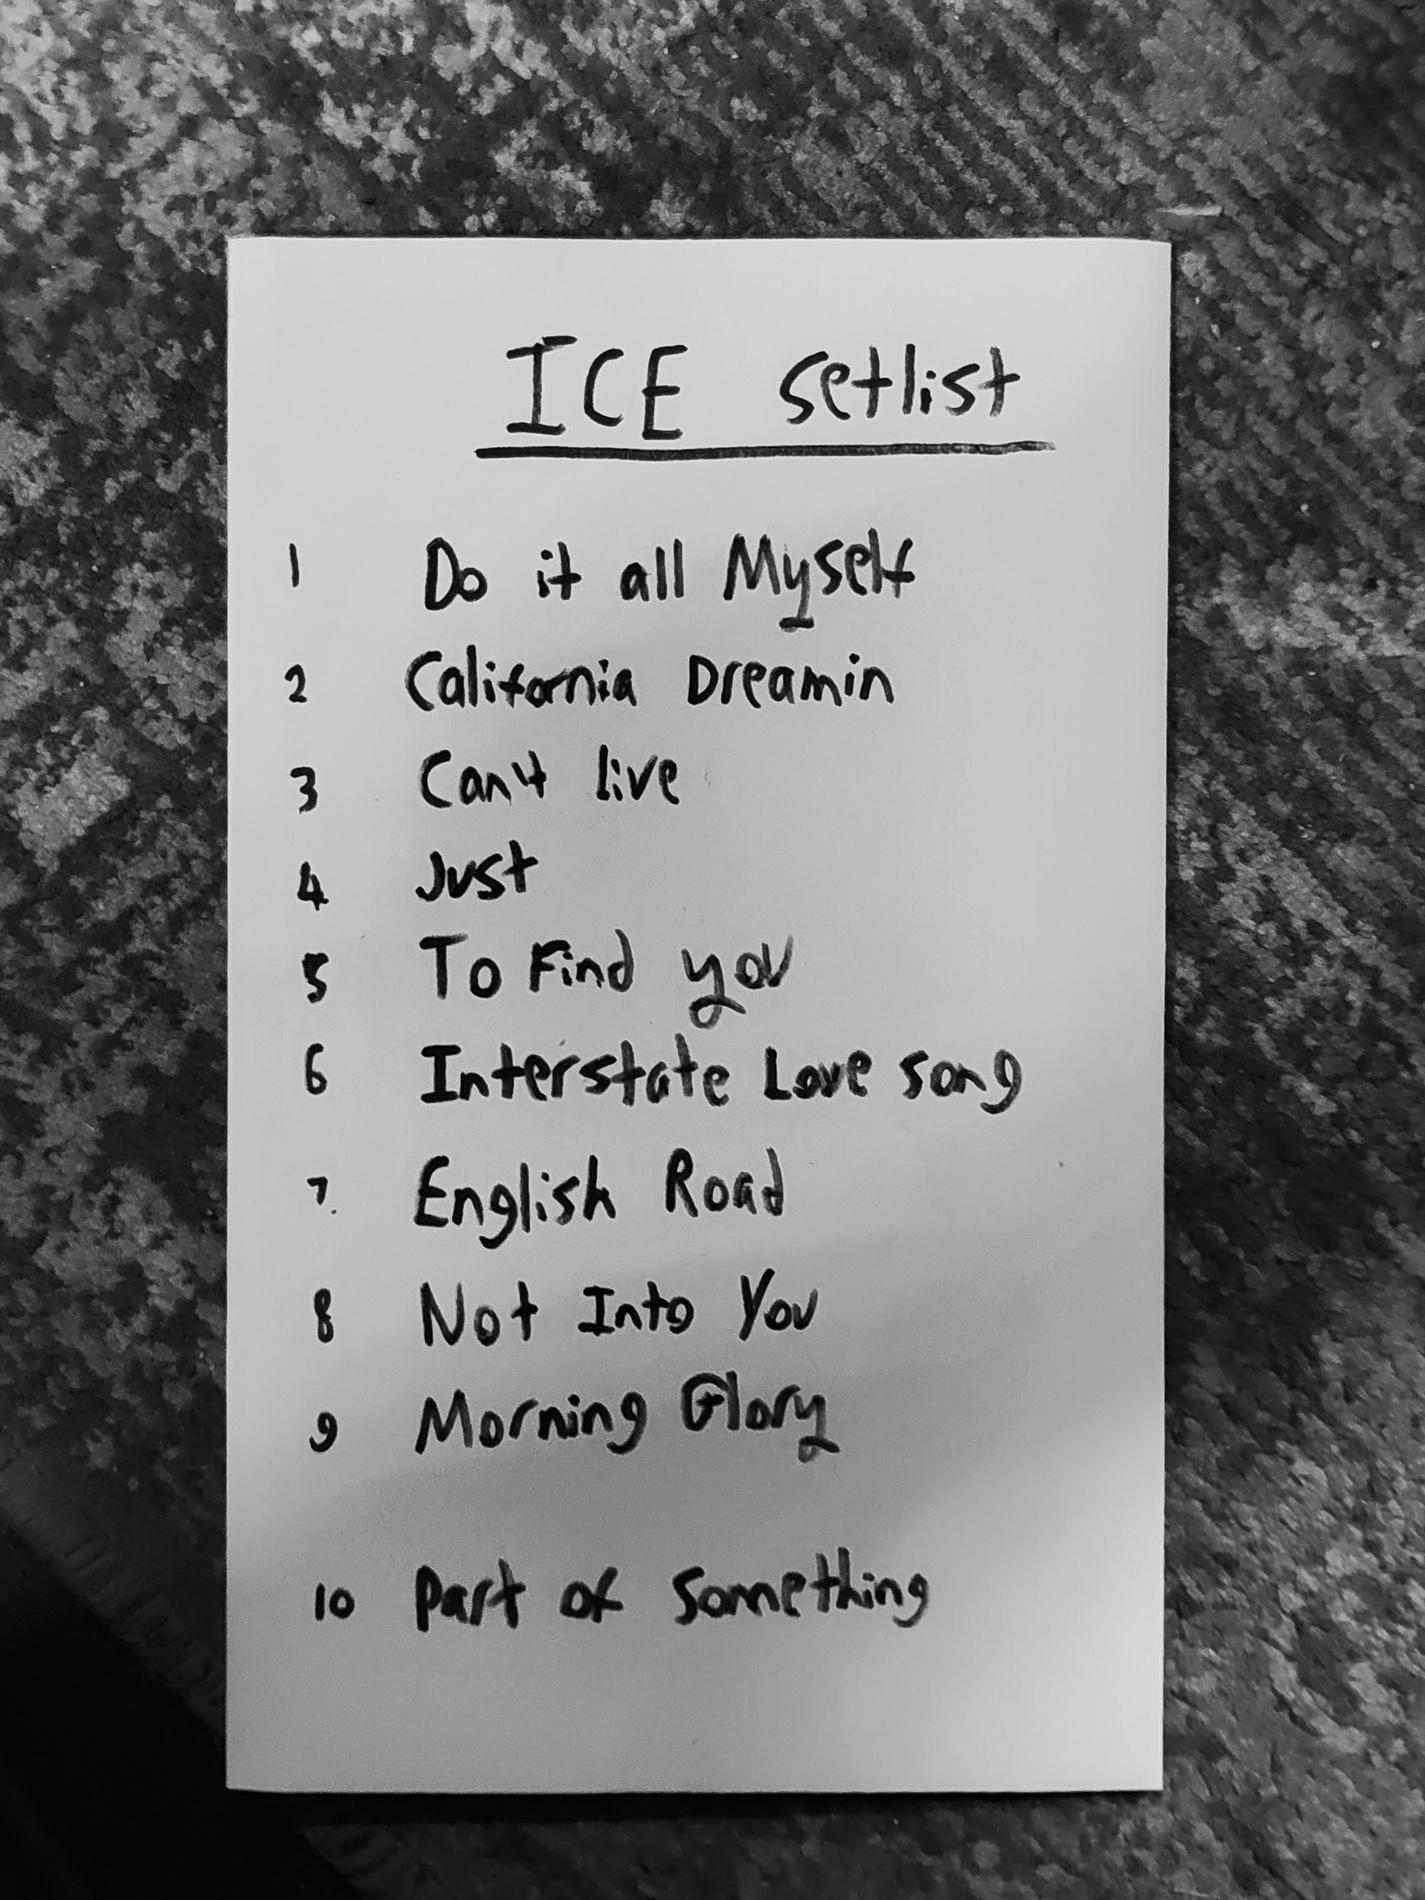 ICE setlist
1 Do it all Myself
2 California Dreamin
3 Can't live
4 Just
5 To Find you
6 Interstate Love song
7. English Road
8 Not Into You
9 Morning Glory
10 Part of Something